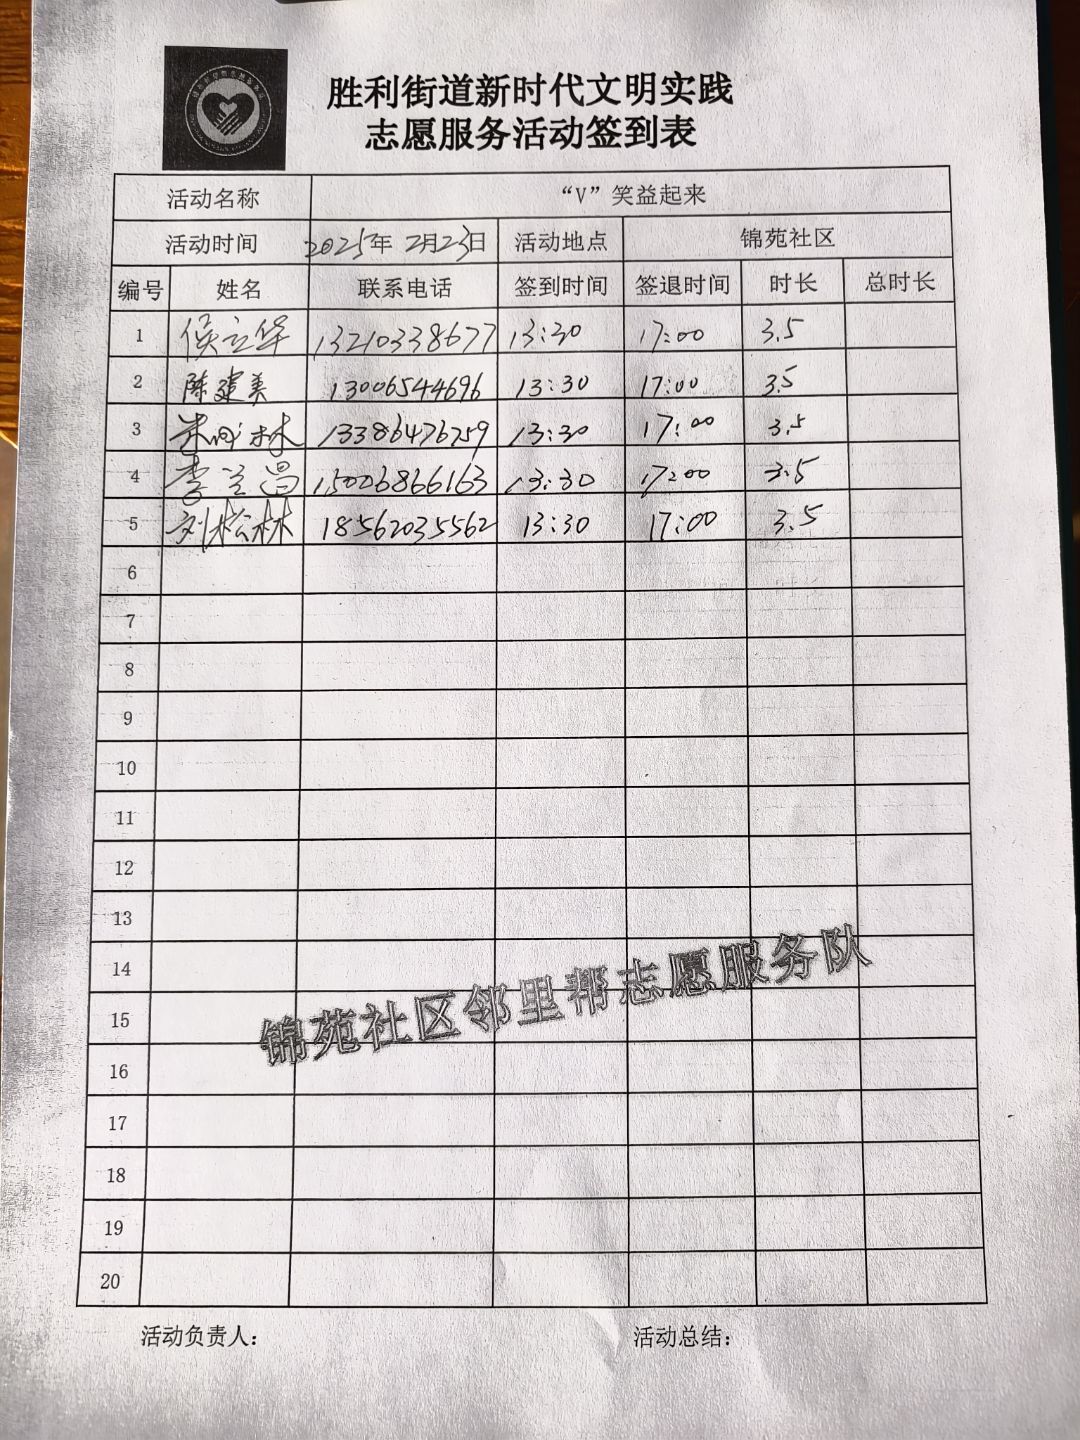 胜利街道新时代文明实践
志愿服务活动签到表
活动名称 “V”笑益起来
活动时间 2025年 2月23日 活动地点 锦苑社区
编号 姓名 联系电话 签到时间 签退时间 时长 总时长
1 侯立华 13210338677 13:30 17:00 3.5
2 陈建美 13006544696 13:30 17:00 3.5
3 林 13386476759 13:30 17:00 3.5
4 李兰昌 15006866163 13:30 17:00 3.5
5 刘松林 18562035562 13:30 17:00 3.5
6
7
8
9
10
11
12
13
14
15
16
17
18
19
20
锦苑社区邻里帮志愿服务队
活动负责人： 活动总结：